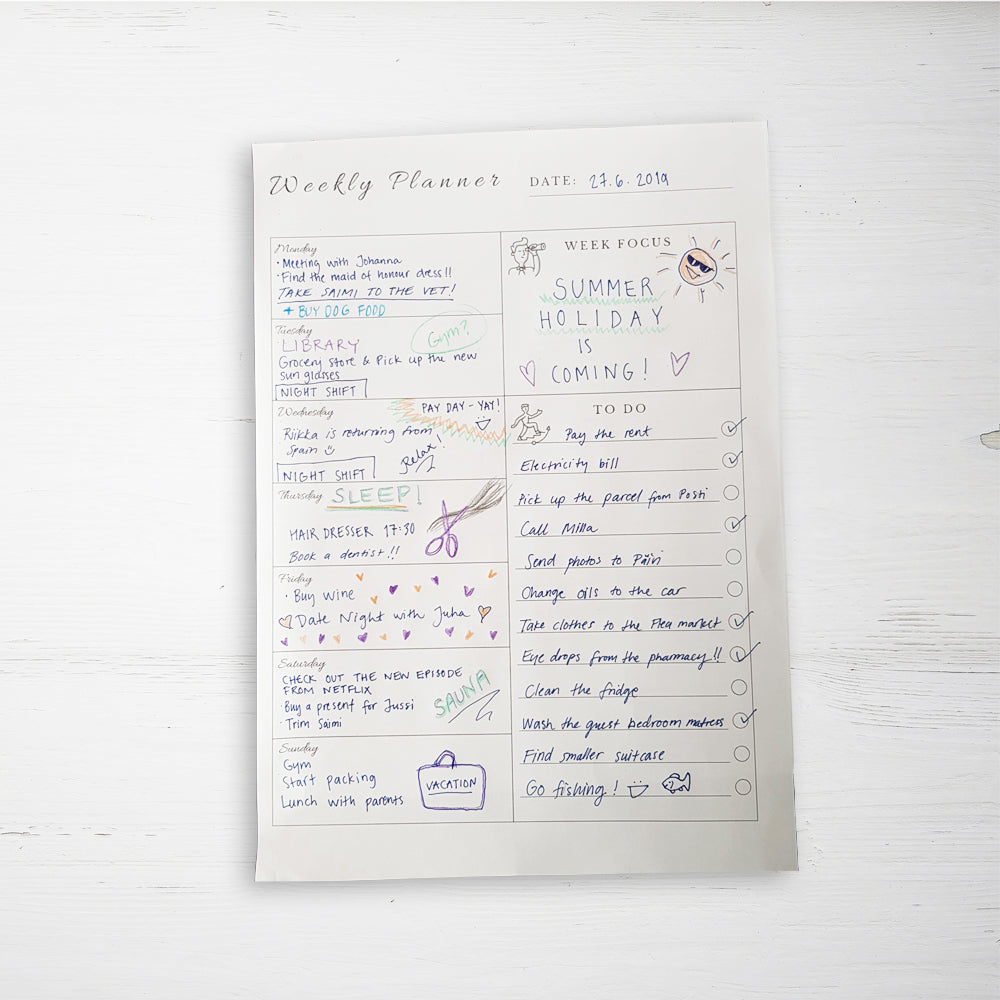 Weekly Planner
DATE: 27.6.2019
Monday
· Meeting with Johanna
· Find the maid of honour dress!!
TAKE SAIMI TO THE VET!
+ BUY DOG FOOD
Tuesday
LIBRARY
Gym?
Grocery store & Pick up the new
sun glasses
NIGHT SHIFT
Wednesday
PAY DAY - YAY!
Riikka is returning from
Spain
Relax!
NIGHT SHIFT
Thursday
SLEEP!
HAIR DRESSER 17:30
Book a dentist!!
Friday
· Buy wine
Date Night with Juha
Saturday
CHECK OUT THE NEW EPISODE
FROM NETFLIX
· Buy a present for Jussi
· Trim Saimi
SAUNA
Sunday
Gym
Start packing
Lunch with parents
VACATION
WEEK FOCUS
SUMMER
HOLIDAY
IS
COMING!
TO DO
Pay the rent
Electricity bill
Pick up the parcel from Posti
Call Milla
Send photos to Päivi
Change oils to the car
Take clothes to the Flea market
Eye drops from the pharmacy!!
Clean the fridge
Wash the guest bedroom matress
Find smaller suitcase
Go fishing!